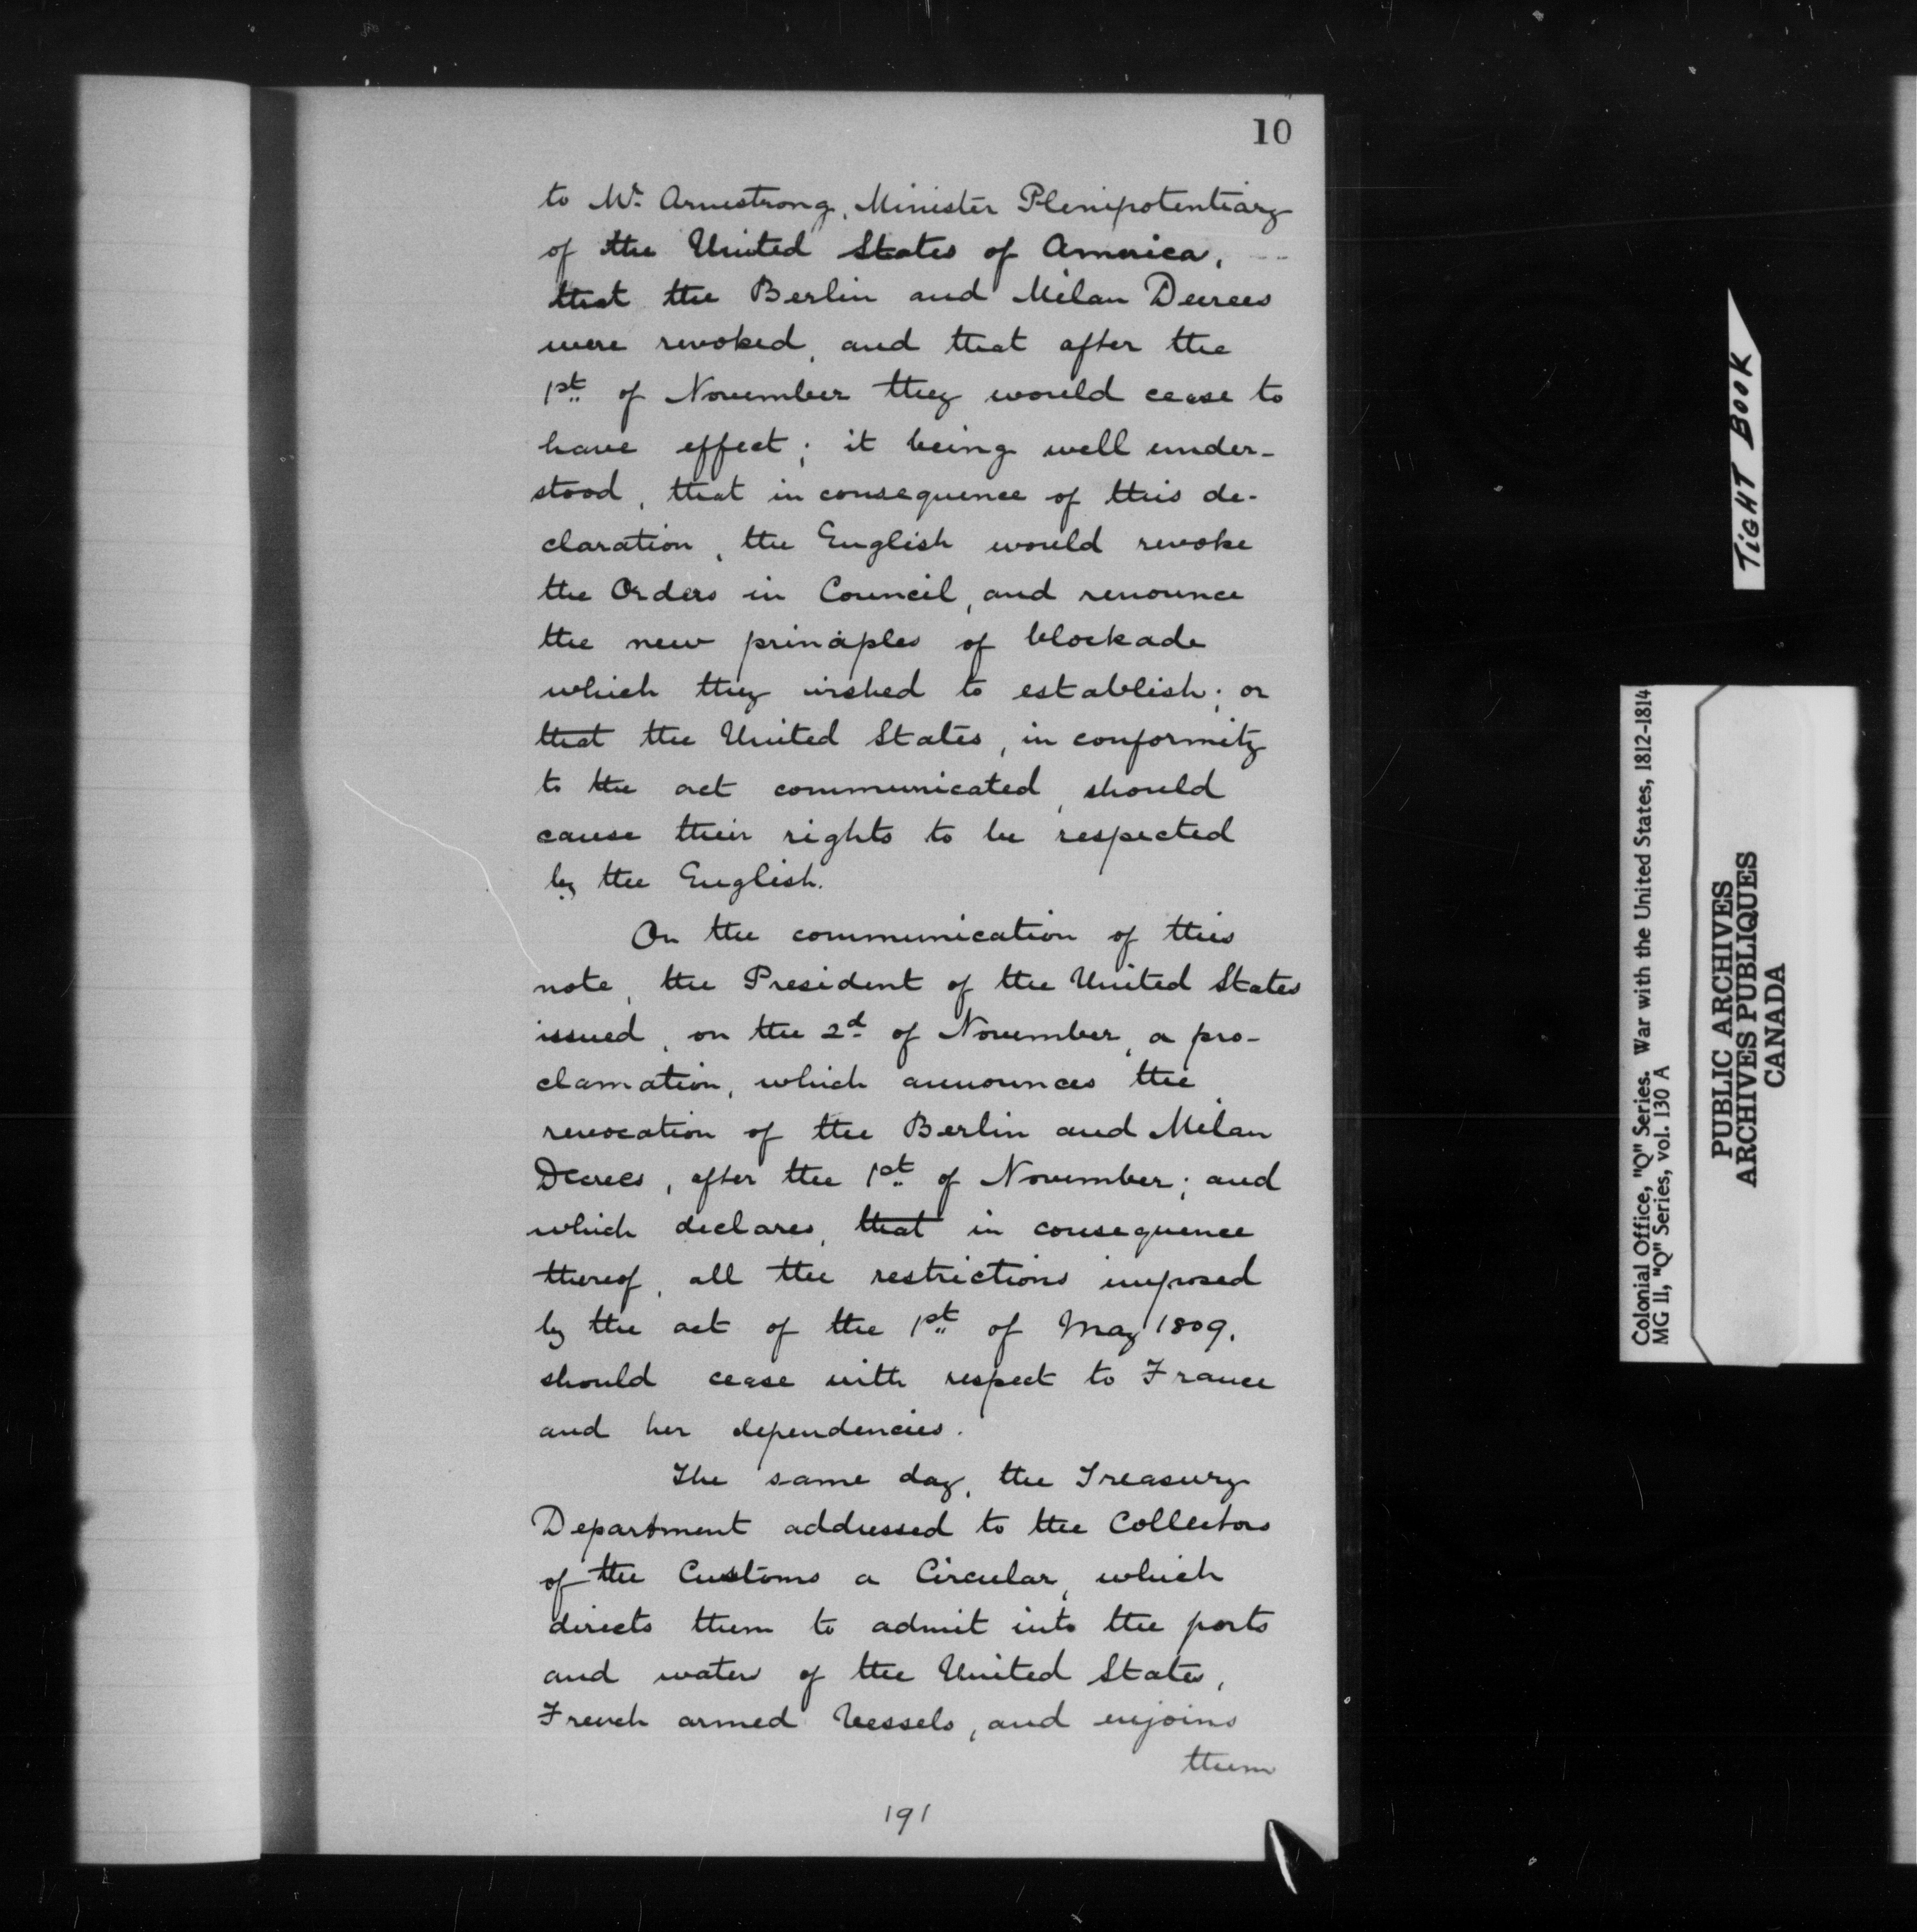 10
to Mr. Armstrong, Minister Plenipotentiary
of the United States of America,
that the Berlin and Milan Decrees
were revoked, and that after the
1st of November they would cease to
have effect; it being well under-
stood, that in consequence of this de-
claration, the English would revoke
the Orders in Council, and renounce
the new principles of blockade
which they wished to establish; or
that the United States, in conformity
to the act communicated, should
cause their rights to be respected
by the English.
On the communication of this
note, the President of the United States
issued, on the 2d of November, a pro-
clamation, which announces the
revocation of the Berlin and Milan
Decrees, after the 1st of November; and
which declares, that in consequence
thereof, all the restrictions imposed
by the act of the 1st of May 1809,
should cease with respect to France
and her dependencies.
The same day, the Treasury
Department addressed to the Collectors
of the Customs a Circular, which
directs them to admit into the ports
and waters of the United States,
French armed Vessels, and enjoins
them
191
TIGHT BOOK
Colonial Office, "Q" Series. War with the United States, 1812-1814
MG 11, "Q" Series, vol. 130 A
PUBLIC ARCHIVES
ARCHIVES PUBLIQUES
CANADA